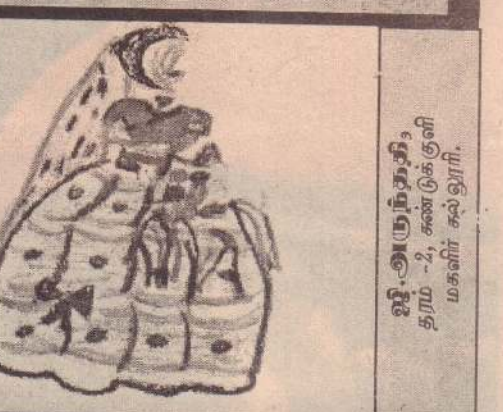 ஜி.அருந்ததி,
தரம் -2, சுண்டுக்குளி
மகளிர் கல்லூரி.